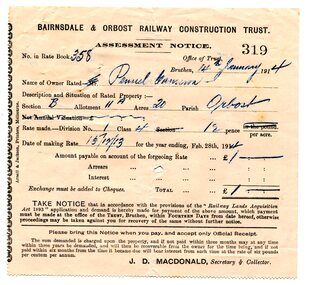 BAIRNSDALE & ORBOST RAILWAY CONSTRUCTION TRUST.
ASSESSMENT NOTICE. 319
No. in Rate Book 358
Office of Trust,
Bruthen, 14th January 1914
Name of Owner Rated
Description and Situation of Rated Property:—
Section B Allotment 11A Acres 20 Parish Orbost
Net Annual Valuation - £
Rate made.—Division No. 1 Class 4 Section 12 pence
Date of making Rate 15/12/13 for the year ending, Feb. 28th, 1914
Amount payable on account of the foregoing Rate ... £ 1
Arrears ...
Interest ...
Exchange must be added to Cheques. TOTAL ... £ 1
TAKE NOTICE that in accordance with the provisions of the "Railway Lands Acquisition
Act 1893" application and demand is hereby made for payment of the above amount, which payment
must be made at the office of the Taxer, Bruthen, within FOURTEEN DAYS from date hereof, otherwise
proceedings may be taken against you for recovery of the same without further notice.
Please bring this Notice when you pay, and accept only Official Receipt.
The sum demanded is charged upon the property, and if not paid within three months may at any time
within three years be demanded, and will then be recoverable from the owner for the time being, and if not
paid within six months from the time same is due will bear interest from such date at the rate of six pounds
per centum per annum.
J. D. MACDONALD, Secretary & Collector.